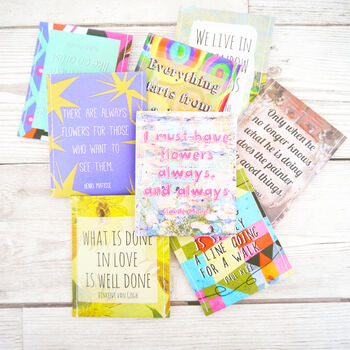 WE LIVE IN
Everything
starts from
THERE ARE ALWAYS
FLOWERS FOR THOSE
WHO WANT TO
SEE THEM.
HENRI MATISSE
I must have
flowers
always,
and always
Claude Monet
Only when he
no longer knows
what he is doing
does the painter
good things
WHAT IS DONE
IN LOVE
IS WELL DONE
VINCENT VAN GOGH
IS
A LINE GOING
FOR A WALK
PAUL KLEE